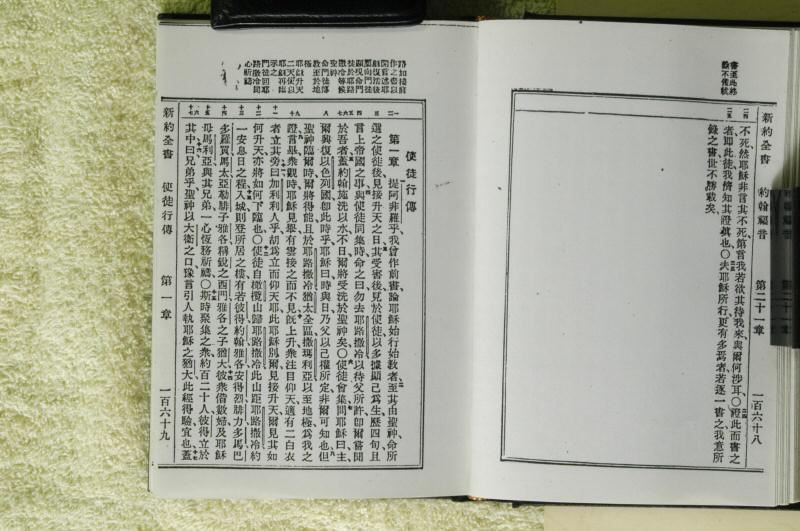 新約全書
約翰福音
第二十一章
一百六十八
書至此終
不死然耶穌非言其不死第言我若欲其待我來與爾何涉耳〇證此而書之
者即此徒我儕知其證眞也〇夫耶穌所行更有多焉者若逐一書之我意所
錄之書世不勝載矣
使徒行傳
第一章 提阿非羅乎我曾作前書論耶穌始行始教者至其由聖神命所
選之使徒後見接升天之日其受害後見於使徒以多據顯己爲生歷四旬且
言上帝國之事與使徒同集時命之曰勿去耶路撒冷以待父所許卽爾嘗聞
於吾者蓋約翰施洗以水不日爾將受洗於聖神矣〇使徒會集問耶穌曰主
爾興復以色列國卽此時乎耶穌曰時與日乃父以己權所定非爾可知也但
聖神臨爾時爾將得能且於耶路撒冷猶太全區撒瑪利亞以至地極爲我之
證言畢衆觀時耶穌見舉有雲接之而不見旣上升衆注目仰天適有二白衣
者立其旁曰加利利人乎胡爲立而仰天耶此耶穌別爾見接升天爾見其如
何升天亦將如何下臨也〇使徒自橄欖山歸耶路撒冷此山距耶路撒冷約
一安息日之程入城則登所居之樓有若彼得約翰雅各安得烈腓力多馬巴
多羅買馬太亞勒腓子雅各稱銳之西門雅各之子猶大彼衆偕數婦及耶穌
母馬利亞與其兄弟一心恆務祈禱〇斯時聚集之衆約百二十人彼得立於
其中曰兄弟乎聖神以大衛之口豫言引人執耶穌之猶大此經得驗宜也蓋
新約全書
使徒行傳
第一章
一百六十九